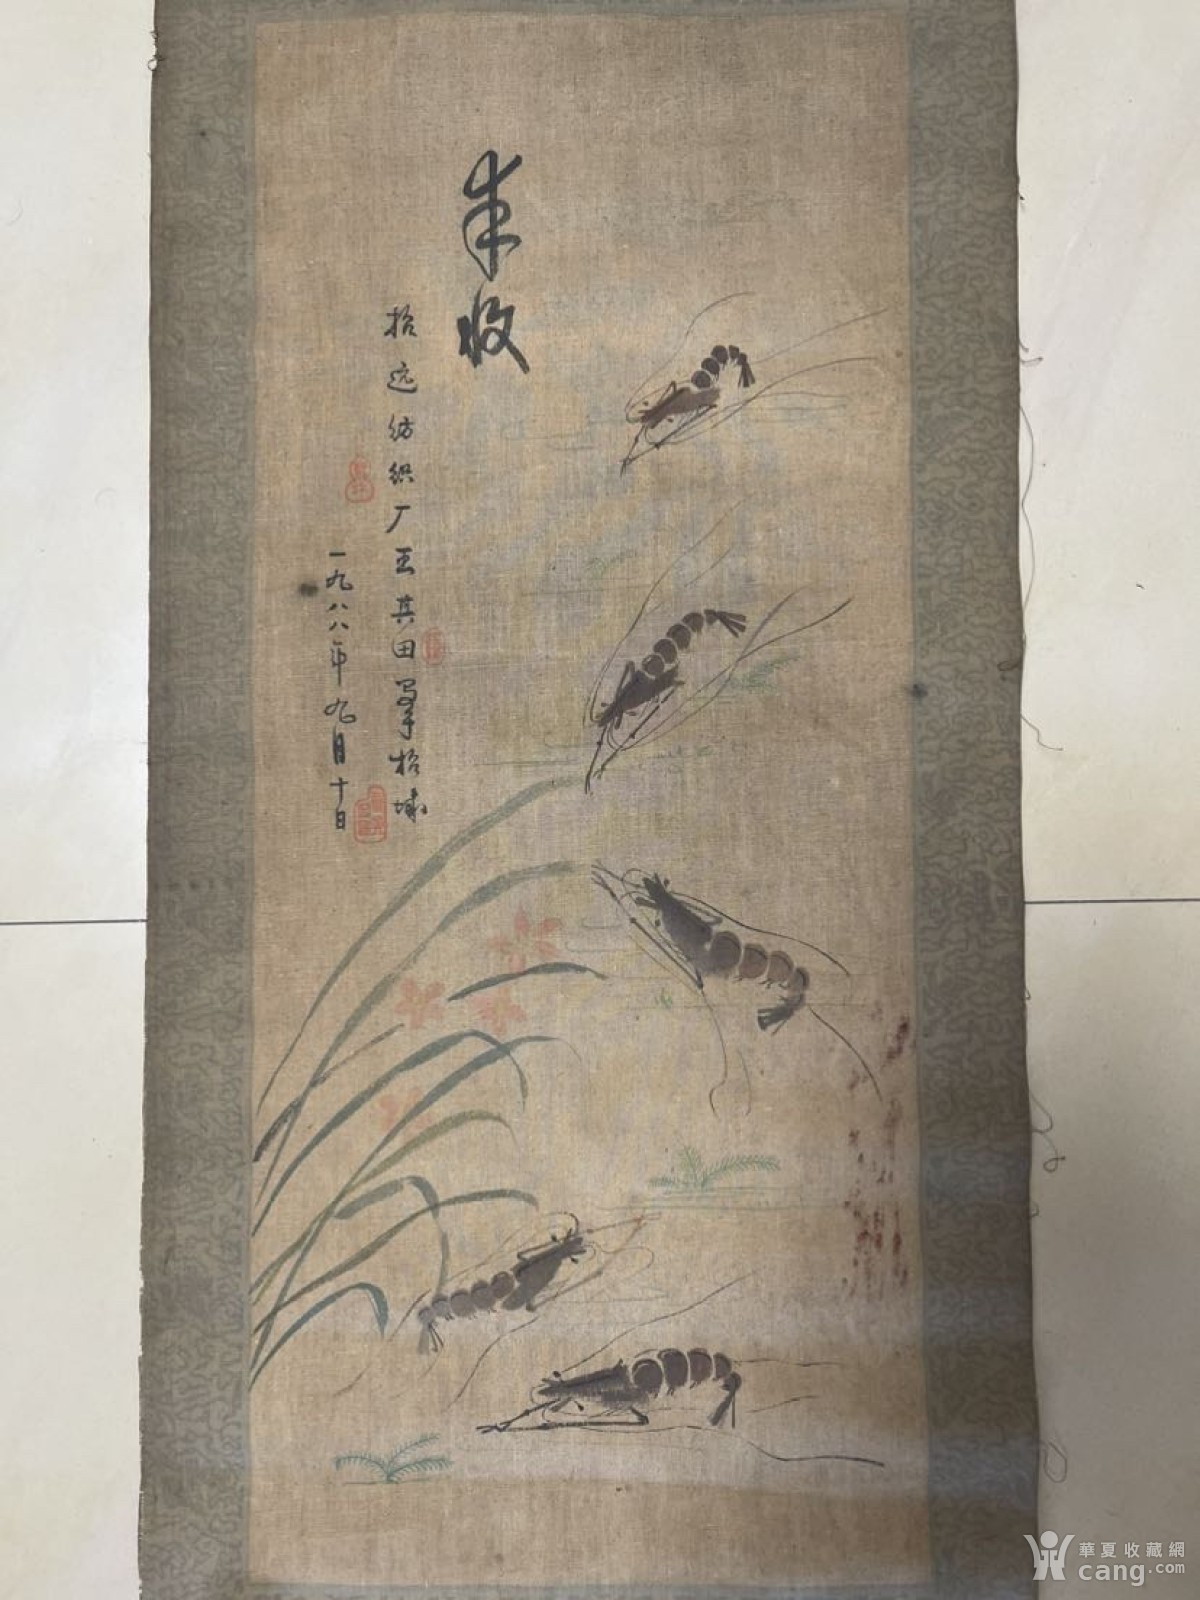 丰收
招远纺织厂王其田写于招城
一九八八年九月十日
華夏收藏網
cang.com